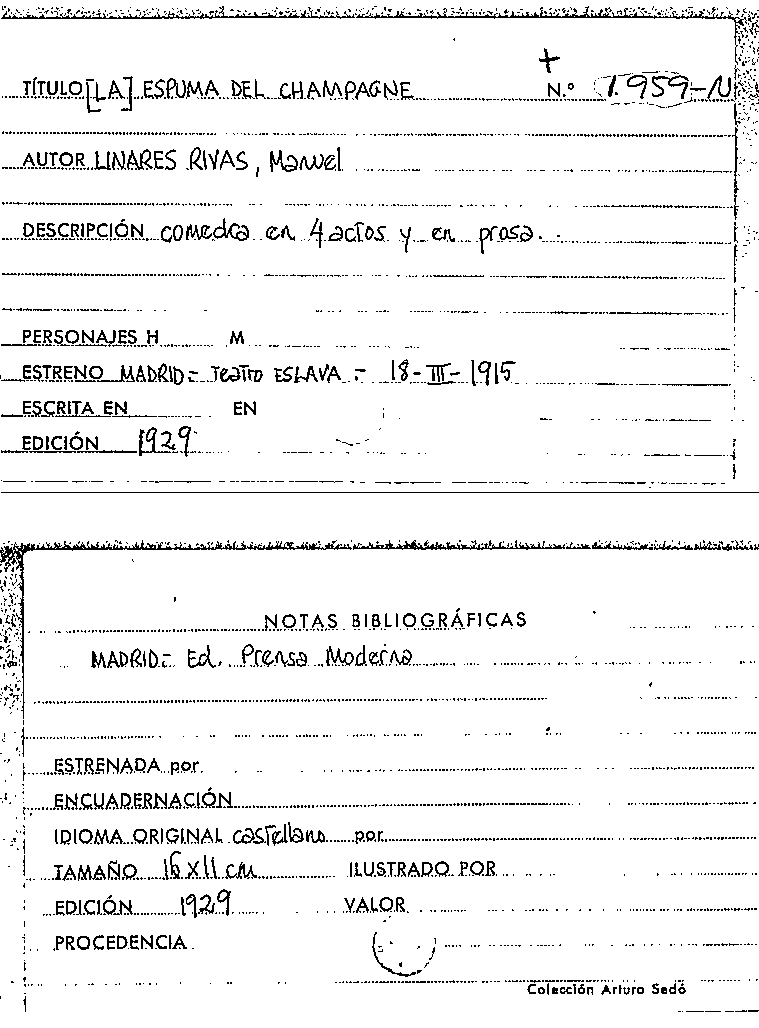 +
TÍTULO [LA] ESPUMA DEL CHAMPAGNE N.º 1.959-N
AUTOR LINARES RIVAS, Manuel
DESCRIPCIÓN comedia en 4 actos y en prosa.
PERSONAJES H M
ESTRENO MADRID= Teatro ESLAVA = 18-III-1915
ESCRITA EN EN
EDICIÓN 1929
NOTAS BIBLIOGRÁFICAS
MADRID= Ed. Prensa Moderna
ESTRENADA por
ENCUADERNACIÓN
IDIOMA ORIGINAL castellano por
TAMAÑO 16 x 11 cm ILUSTRADO POR
EDICIÓN 1929 VALOR
PROCEDENCIA
Colección Arturo Sedó